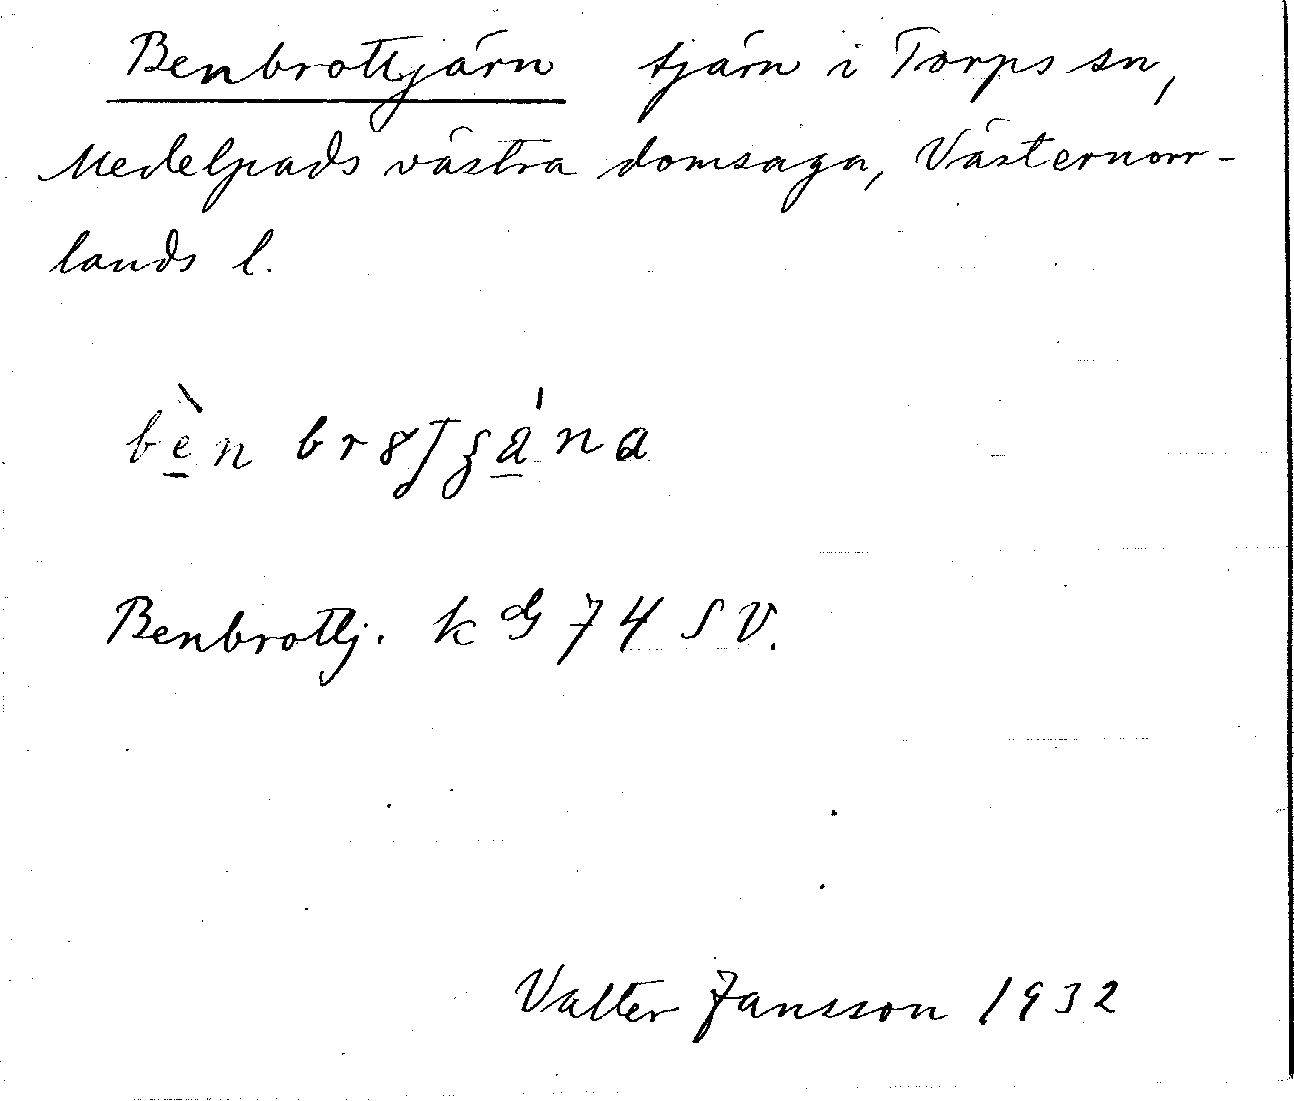 Benbrottjärn tjärn i Torps sn,
Medelpads västra domsaga, Västernorr-
lands l.
Benbrottj. k G 74 SV.
Valter Jansson 1932